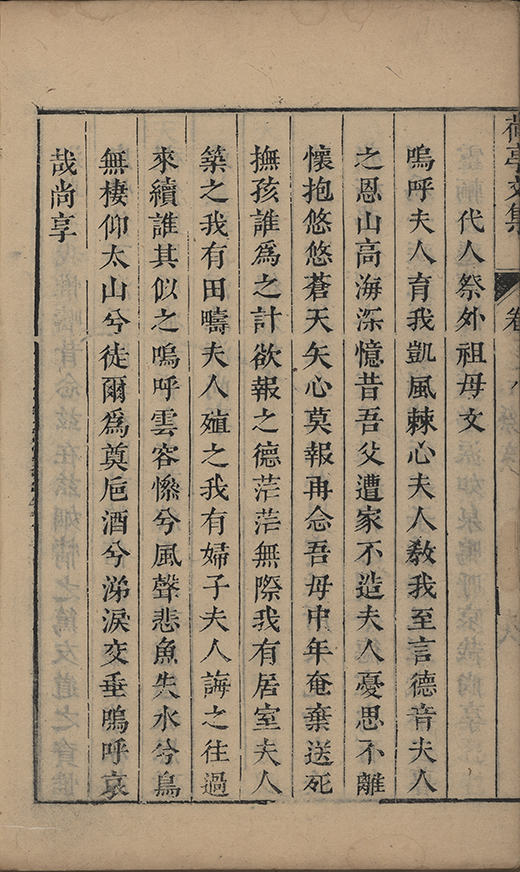 荷亭文集 卷
代人祭外祖母文
嗚呼夫人育我凱風棘心夫人敎我至言德音夫人
之恩山高海深憶昔吾父遭家不造夫人憂思不離
懷抱悠悠蒼天矢心莫報再念吾母中年奄棄送死
撫孩誰爲之計欲報之德茫茫無際我有居室夫人
築之我有田疇夫人殖之我有婦子夫人誨之往過
來續誰其似之嗚呼雲容慘兮風聲悲魚失水兮鳥
無棲仰太山兮徒爾爲奠卮酒兮涕淚交垂嗚呼哀
哉尚享